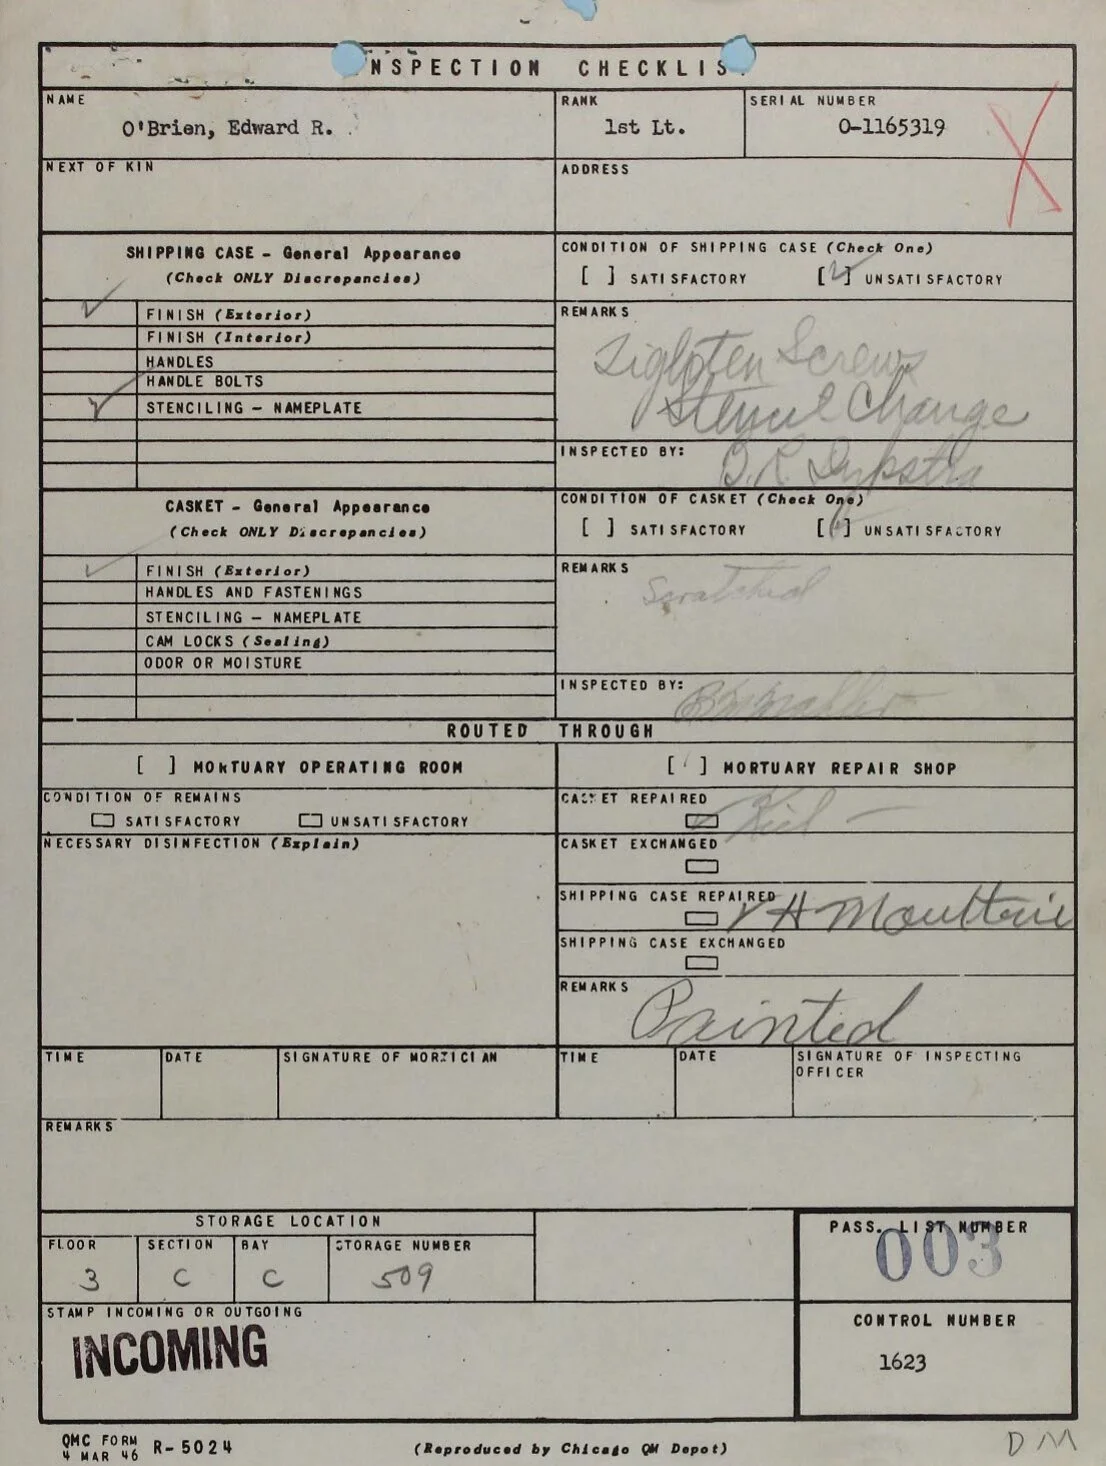 INSPECTION CHECKLIS
NAME
O'Brien, Edward R.
RANK
1st Lt.
SERIAL NUMBER
O-1165319
NEXT OF KIN
ADDRESS
SHIPPING CASE - General Appearance
(Check ONLY Discrepancies)
CONDITION OF SHIPPING CASE (Check One)
[ ] SATISFACTORY [✓] UNSATISFACTORY
✓ FINISH (Exterior)
FINISH (Interior)
HANDLES
HANDLE BOLTS
✓ STENCILING - NAMEPLATE
REMARKS
Tighten Screws
Stencil Change
INSPECTED BY:
D. R. Dykstra
CASKET - General Appearance
(Check ONLY Discrepancies)
CONDITION OF CASKET (Check One)
[ ] SATISFACTORY [✓] UNSATISFACTORY
✓ FINISH (Exterior)
HANDLES AND FASTENINGS
STENCILING - NAMEPLATE
CAM LOCKS (Sealing)
ODOR OR MOISTURE
REMARKS
Scratched
INSPECTED BY:
ROUTED THROUGH
[ ] MORTUARY OPERATING ROOM
[✓] MORTUARY REPAIR SHOP
CONDITION OF REMAINS
SATISFACTORY UNSATISFACTORY
NECESSARY DISINFECTION (Explain)
CASKET REPAIRED
✓
CASKET EXCHANGED
SHIPPING CASE REPAIRED
✓ H Moultrie
SHIPPING CASE EXCHANGED
REMARKS
Painted
TIME DATE SIGNATURE OF MORTICIAN
TIME DATE SIGNATURE OF INSPECTING
OFFICER
REMARKS
STORAGE LOCATION
FLOOR SECTION BAY STORAGE NUMBER
3 C C 509
PASS. LIST NUMBER
003
STAMP INCOMING OR OUTGOING
INCOMING
CONTROL NUMBER
1623
QMC FORM
4 MAR 46 R-5024
(Reproduced by Chicago QM Depot)
DM